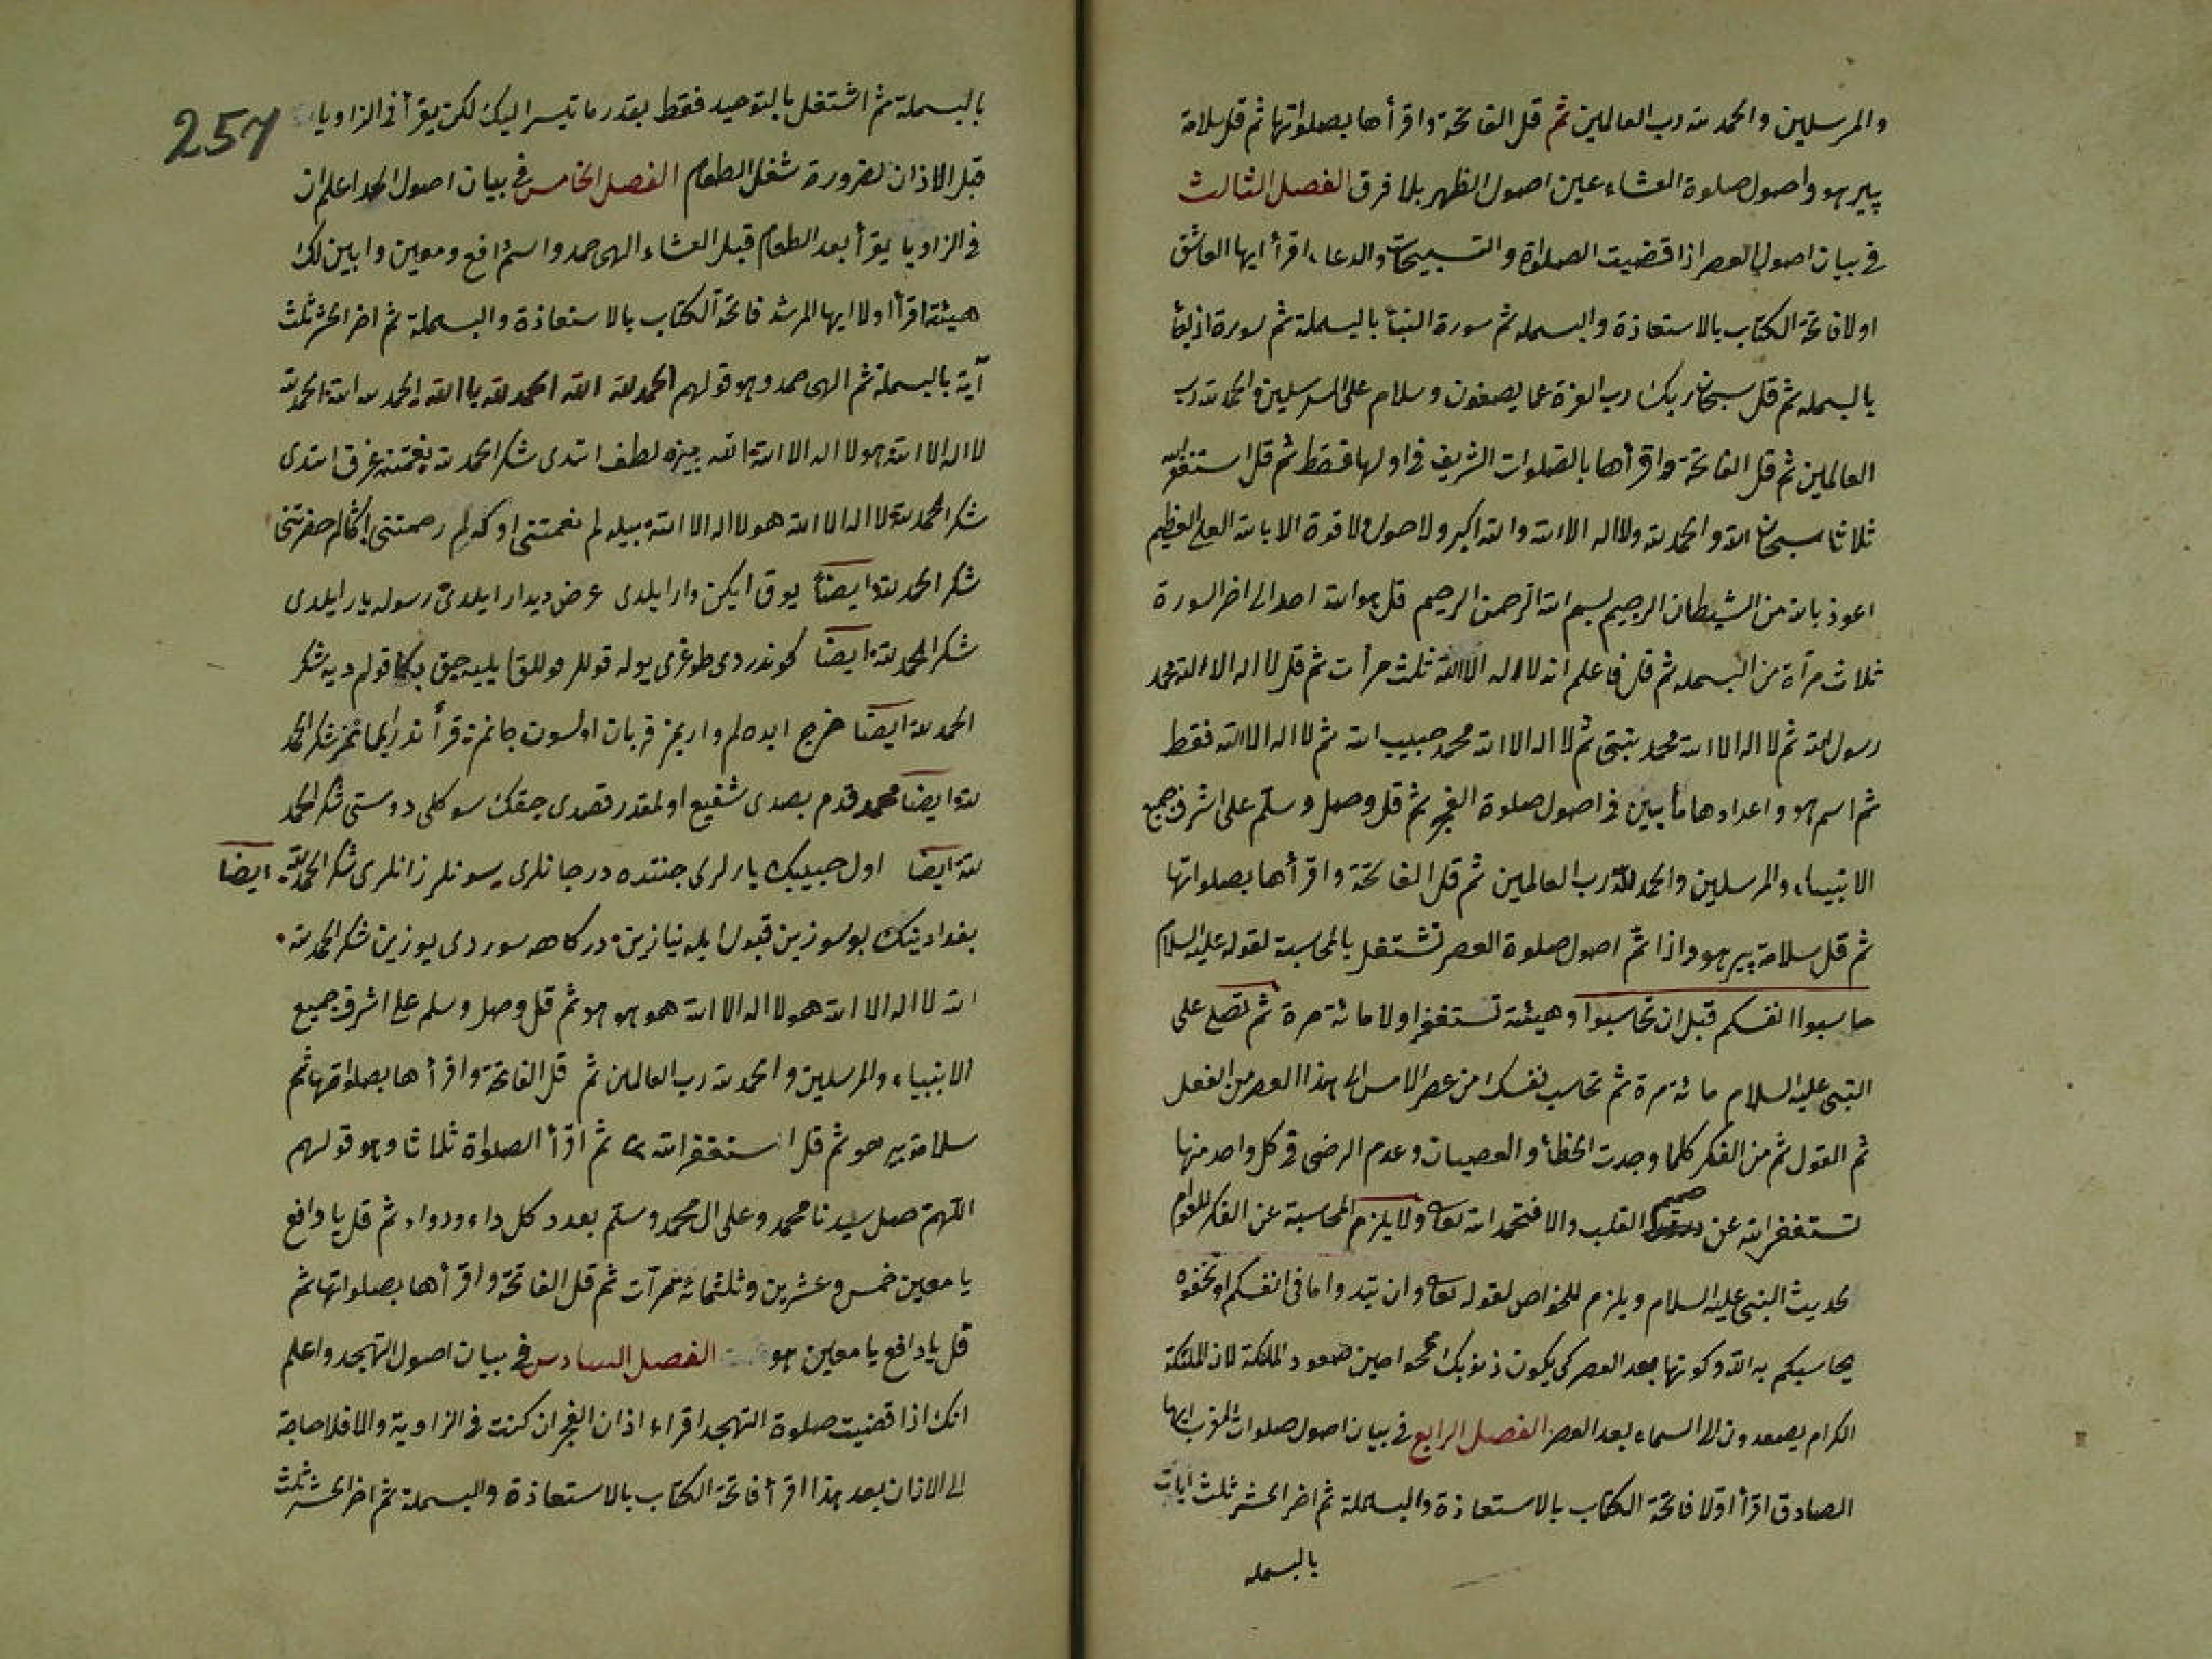 والمرسلين والحمد لله رب العالمين ثم قل الفاتحة واقرأها بصلواتها ثم قل سلامة
پير هو واصول صلوة العشاء عين اصول الظهر بلا فرق الفصل الثالث
في بيان اصول العصر اذا قضيت الصلوة والتسبيحات والدعاء اقرأ ايها العاشق
اولا فاتحة الكتاب بالاستعاذة والبسمله ثم سورة النبأ بالبسملة ثم سورة
بالبسمله ثم قل سبحان ربك رب العزة عما يصفون وسلام على المرسلين والحمد لله رب
العالمين ثم قل الفاتحة واقرأها بالصلوات الشريف في اولها فقط ثم قل استغفر الله
ثلاثا سبحان الله والحمد لله ولا اله الا الله والله اكبر ولا حول ولا قوة الا بالله العلي العظيم
اعوذ بالله من الشيطان الرجيم بسم الله الرحمن الرحيم قل هو الله احد الى اخر السورة
ثلاث مرآة من البسمله ثم قل فاعلم انه لا اله الا الله ثلث مرأت ثم قل لا اله الا الله محمد
رسول الله ثم لا اله الا الله محمد نبتى ثم لا اله الا الله محمد حبيب الله ثم لا اله الا الله فقط
ثم اسم هو واعدادها مأ بين في اصول صلوة الفجر ثم قل وصل وسلم على اشرف جميع
الانبياء والمرسلين والحمد لله رب العالمين ثم قل الفاتحة واقرأها بصلواتها
ثم قل سلامة پير هو واذا تم اصول صلوة العصر تشتغل بالمحاسبة لقوله عليه السلام
حاسبوا انفسكم قبل ان تحاسبوا وهيئته تستغفر اولا مائة مرة ثم تصل على
النبى عليه السلام مائة مرة ثم تحاسب نفسك من عصر الامس الى هذا العصر من الفعل
ثم القول ثم من الفكر كلما وجدت الخطأ والعصيان وعدم الرضى في كل واحد منها
تستغفر الله عن صميم القلب والا فتحمد الله تعالى ولا يلزم المحاسبة عن الفكر للعوام
لحديث النبى عليه السلام ويلزم للخواص لقوله تعالى وان تبدوا ما فى انفسكم او تخفوه
يحاسبكم به الله وكونها بعد العصر كي يكون ذنوبك محوا حين صعود الملئكة لان الملئكة
الكرام يصعدون الى السماء بعد العصر الفصل الرابع في بيان اصول صلوات المغرب ايها
الصادق اقرأ اولا فاتحة الكتاب بالاستعاذة والبسملة ثم اخر الحشر ثلث آيات
بالبسمله
257
بالبسملة ثم اشتغل بالتوحيد فقط بقدر ما تيسر اليك لكن يقرأ في الزاويا
قبل الاذان لضرورة شغل الطعام الفصل الخامس في بيان اصول الحمد اعلم ان
في الزاويا يقرأ بعد الطعام قبل العشاء الهى حمد واسم دافع ومعين وابين لك
هيئته اقرأ اولا ايها المرشد فاتحة الكتاب بالاستعاذة والبسملة ثم اخر الحشر ثلث
آية بالبسملة ثم الهى حمد وهو قولهم الحمد لله الله الحمد لله يا الله الحمد لله الله الحمد لله
لا اله الا الله هو لا اله الا الله الله بيزه لطف ايتدى شكر الحمد لله نعمتنه غرق ايتدى
شكر الحمد لله لا اله الا الله هو لا اله الا الله بيله لم نعمتنى اوكه لم رحمتنى
شكر الحمد لله ايضاً يوق ايكن وار ايلدى عرض ديدار ايلدى رسوله يار ايلدى
شكر الحمد لله ايضا كوندردى طوغرى يوله قوللر قوللق ايليه حق بكا قولم ديه شكر
الحمد لله ايضا خرج ايده لم واريمز قربان اولسون جانمز قرأندر ايمانمز شكر الحمد
لله ايضا محمد قدم بصدى شفيع اولمقدر قصدى حقك سوكلى دوستى شكر الحمد
لله ايضا اول حبيبك يارلرى جنتده درجانلرى سونلر زانلرى شكر الحمد لله ايضا
بغدادينك بو سوزين قبول ايله نيازين دركاهه سوردى يوزين شكر الحمد لله
الله لا اله الا الله هو لا اله الا الله هو هو هو ثم قل وصل وسلم على اشرف جميع
الانبياء والمرسلين والحمد لله رب العالمين ثم قل الفاتحة واقرأها بصلواتها ثم
سلامة پير هو ثم قل استغفر الله ثم اقرأ الصلواة ثلاثا وهو قولهم
اللهم صل سيدنا محمد وعلى ال محمد وسلم بعدد كل داء ودواء ثم قل يا دافع
يا معين خمس وعشرين وثلثمائة مرآت ثم قل الفاتحة واقرأها بصلواتها ثم
قل يا دافع يا معين هو الفصل السادس في بيان اصول التهجد واعلم
انك اذا قضيت صلوة التهجد اقراء اذان الفجر ان كنت في الزاوية والا فلا حاجة
الى الاذان بعد هذا اقرأ فاتحة الكتاب بالاستعاذة والبسملة ثم اخر الحشر ثلث